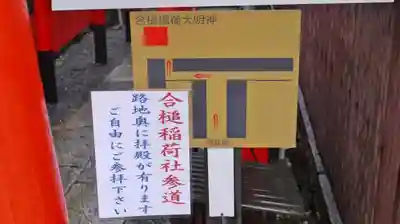 合槌稲荷大明神
合槌稲荷社参道
路地奥に拝殿が有ります
ご自由にご参拝下さい